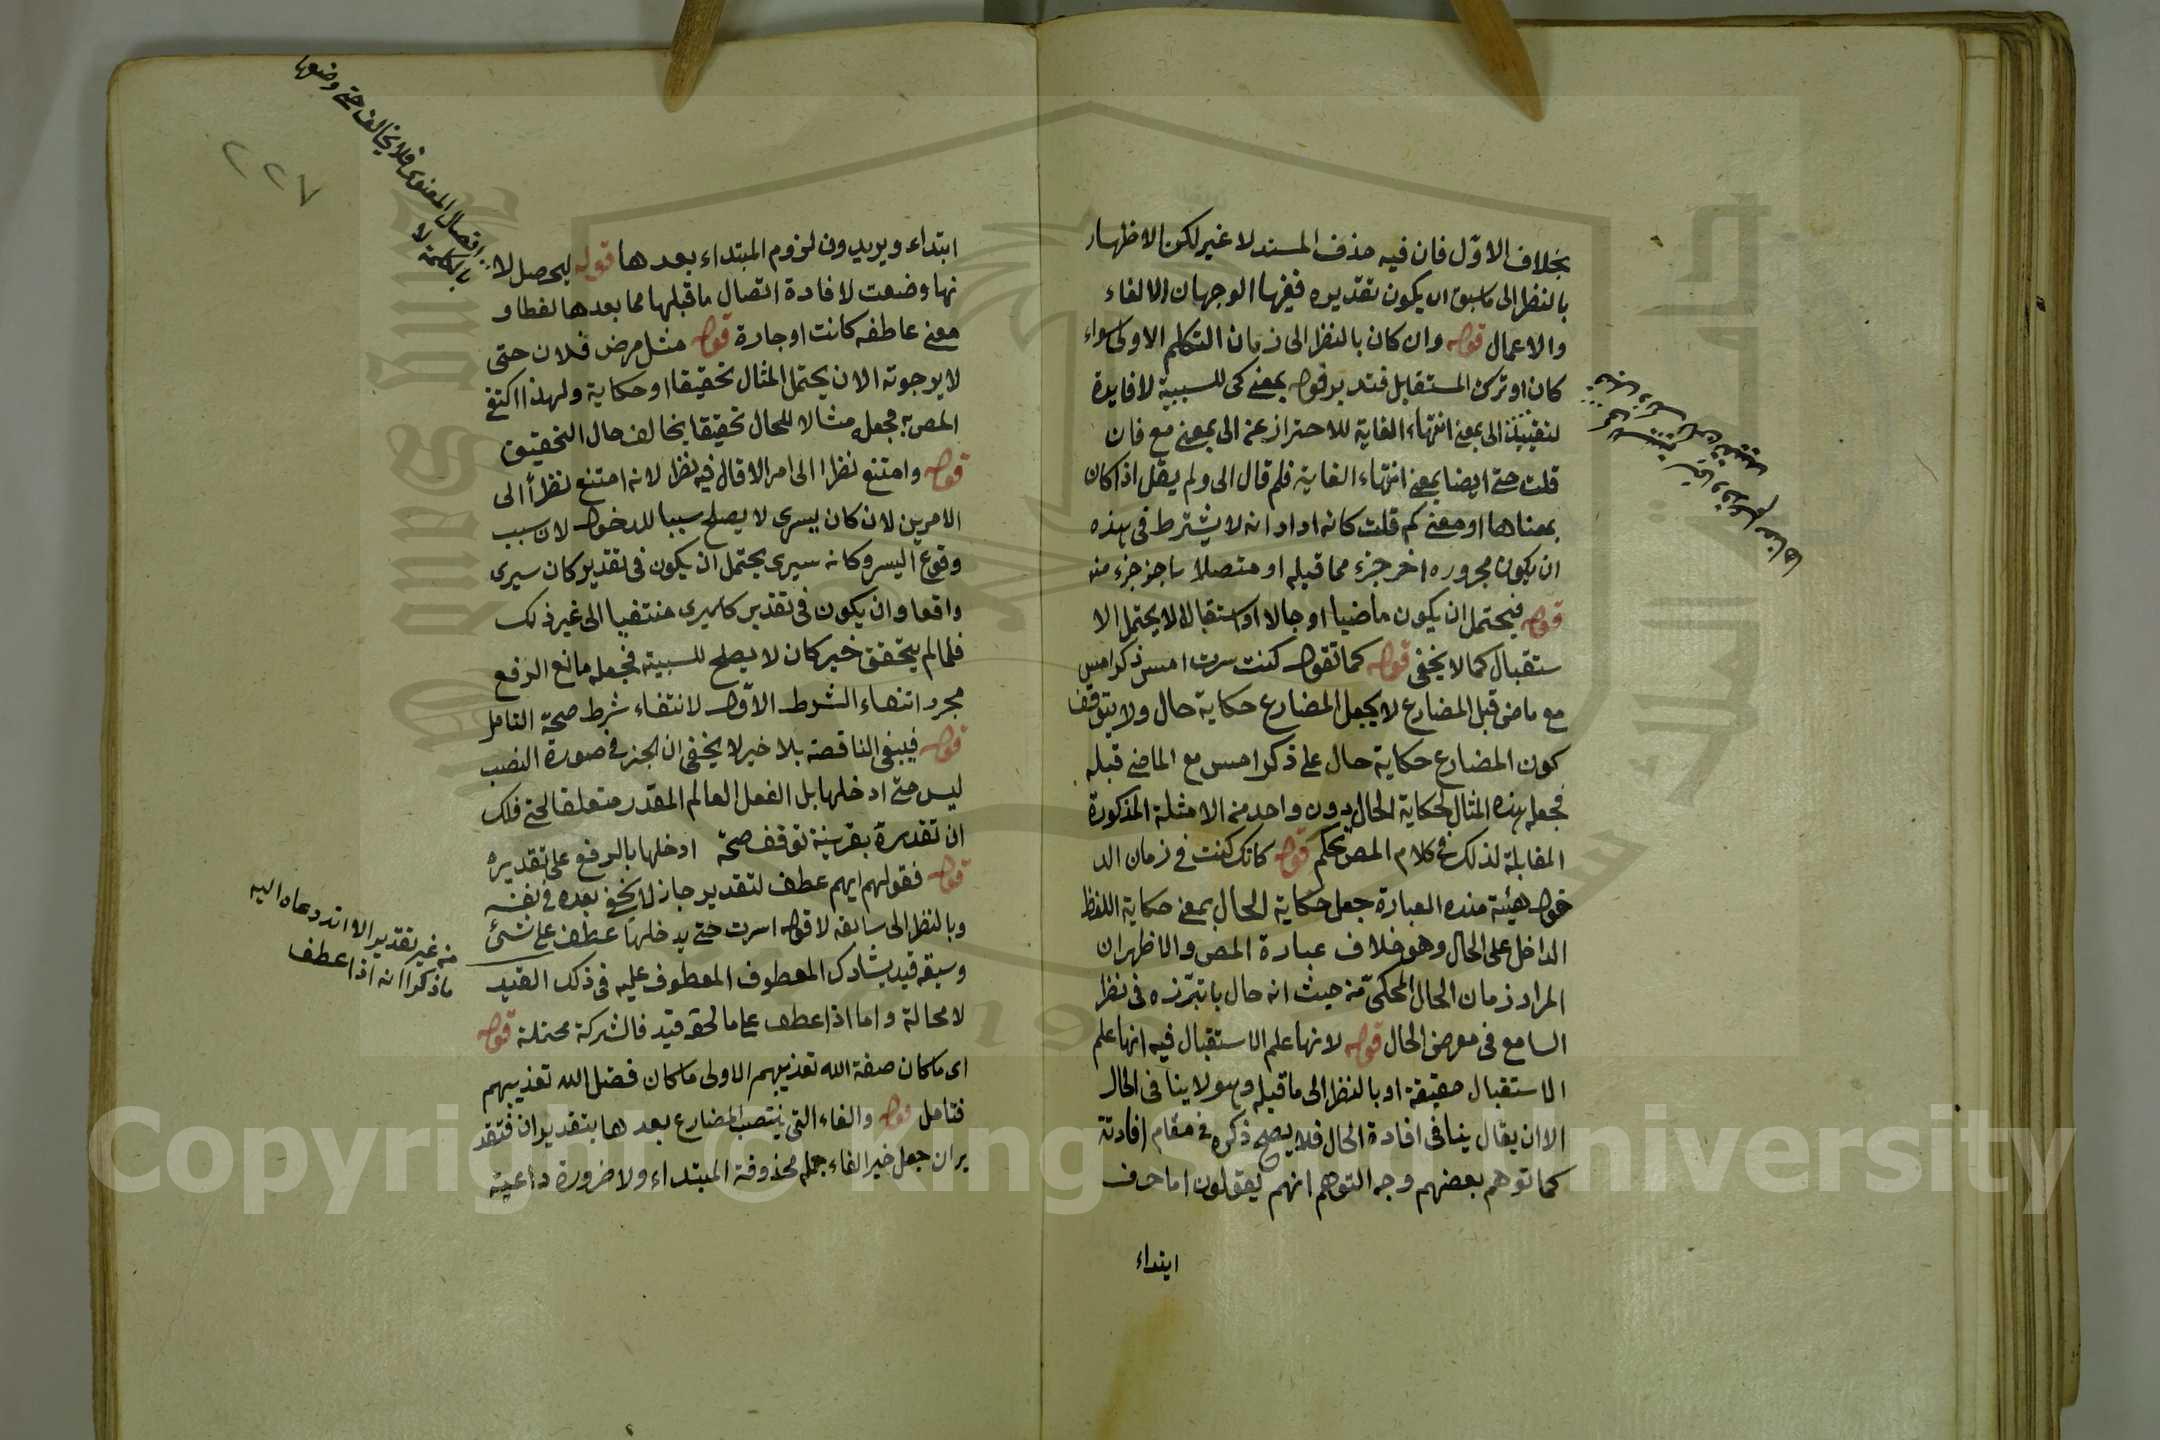 بخلاف الاوّل فان فيه حذف المسند لا غير لكن الاظهار
بالنظر الى ما سبق ان يكون تقديره ففيها الوجهان الالغاء
والاعمال قوله وان كان بالنظر الى زمان التكلم الاولى سواء
كان او ترك المستقبل فتدبر قوله بمعنى كى للسببية لا فايدة
لتقييد الى بمعنى انتهاء الغاية للاحتراز عن الى بمعنى مع فان
قلت حتى ايضا بمعنى انتهاء الغاية فلم قال الى ولم يقل اذا كان
بمعناها او معنى كم قلت كانه اراد انه لا يشترط فى هذه
ان يكون مجروره اخر جزء مما قبله او متصلا باخر جزء منه
قوله فيحتمل ان يكون ماضيا او حالا او استقبالا لا يحتمل الا
ستقبال كما لا يخفى قوله كما تقول كنت سرت امس ذكر امس
مع ماضى قبل المضارع لا يجعل المضارع حكاية حال ولا يتوقف
كون المضارع حكاية حال على ذكر امس مع الماضى قبله
فجعل هذه المثال لحكاية الحال دون واحد من الامثلة المذكورة
المقابلة لذلك فى كلام المص تحكم قوله كانك كنت فى زمان الد
خول هيئة هذه العبارة جعل حكاية الحال بمعنى حكاية اللفظ
الداخل على الحال وهو خلاف عبارة المص والاظهر ان
المراد زمان الحال المحكىّ من حيث انه حال
السامع فى معرض الحال قوله لانها علم الاستقبال فيه انها علم
الاستقبال حقيقة او بالنظر الى ما قبله وهو لا ينافى الحال
الا ان يقال ينافى افادة الحال فلا يصح ذكره فى مقام افادته
كما توهم بعضهم وجه التوهم انهم يقولون اما حرف
ابتداء
٢٢٧
ابتداء ويريدون لزوم المبتداء بعدها قوله ليحصل لا
نها وضعت لافادة اتصال ما قبلها مما بعدها لفظا و
معنى عاطفه كانت او جارة قوله مثل مرض فلان حتى
لا يرجونه الان يحتمل المثال تحقيقا او حكاية ولهذا اكتفى
المص به فجعله مثالا للحال تحقيقا يخالف حال التحقيق
قوله وامتنع نظرا الى امر الاقال فيه نظر لانه امتنع نظرأ الى
الامرين لان كان يسرى لا يصلح سببا للدخول لان سبب
وقوع اليسر وكانه سيرى يحتمل ان يكون فى تقدير كان سيرى
واقعا وان يكون فى تقدير كان سيرى منتفيا الى غير ذلك
فلما لم يتحقق خبر كان لا يصلح للسببية فجعله مانع الرفع
مجرد انتفاء الشرط الاوّل لانتفاء شرط صحة التامل
قوله فيبقى الناقصة بلا خبر لا يخفى ان الجز فى صورة النصب
ليس حتى ادخلها بل الفعل العالم المقدّر متعلقا لحتى فلك
ان تقدره بقرينة توقف صحة ادخلها بالرفع على تقديره
قوله فقولهم ايهم عطف لتقدير جاز لا يخفى بعده فى نفسه
وبالنظر الى سائقه لا قوله اسرت حتى يدخلها عطف على شىئ
وسبقه قيد يشارك المعطوف المعطوف عليه فى ذلك القيد
لا محالة واما اذا عطف على ما لحقه قيد فالشركة محتملة قوله
اى ما كان صفة الله تعذيبهم الاولى ما كان فضل الله تعذيبهم
فتامل قوله والفاء التى ينتصب المضارع بعدها بتقدير ان فتقد
ير ان جعل خبر الفاء جمله محذوفة المبتداء ولا ضرورة داعية
اتصال المعنوى فلا يخالف حتى وضعها
من غير تقدير الا انه دعاه اليه
ما ذكروا انه اذا عطف
Copyright © King Saud University